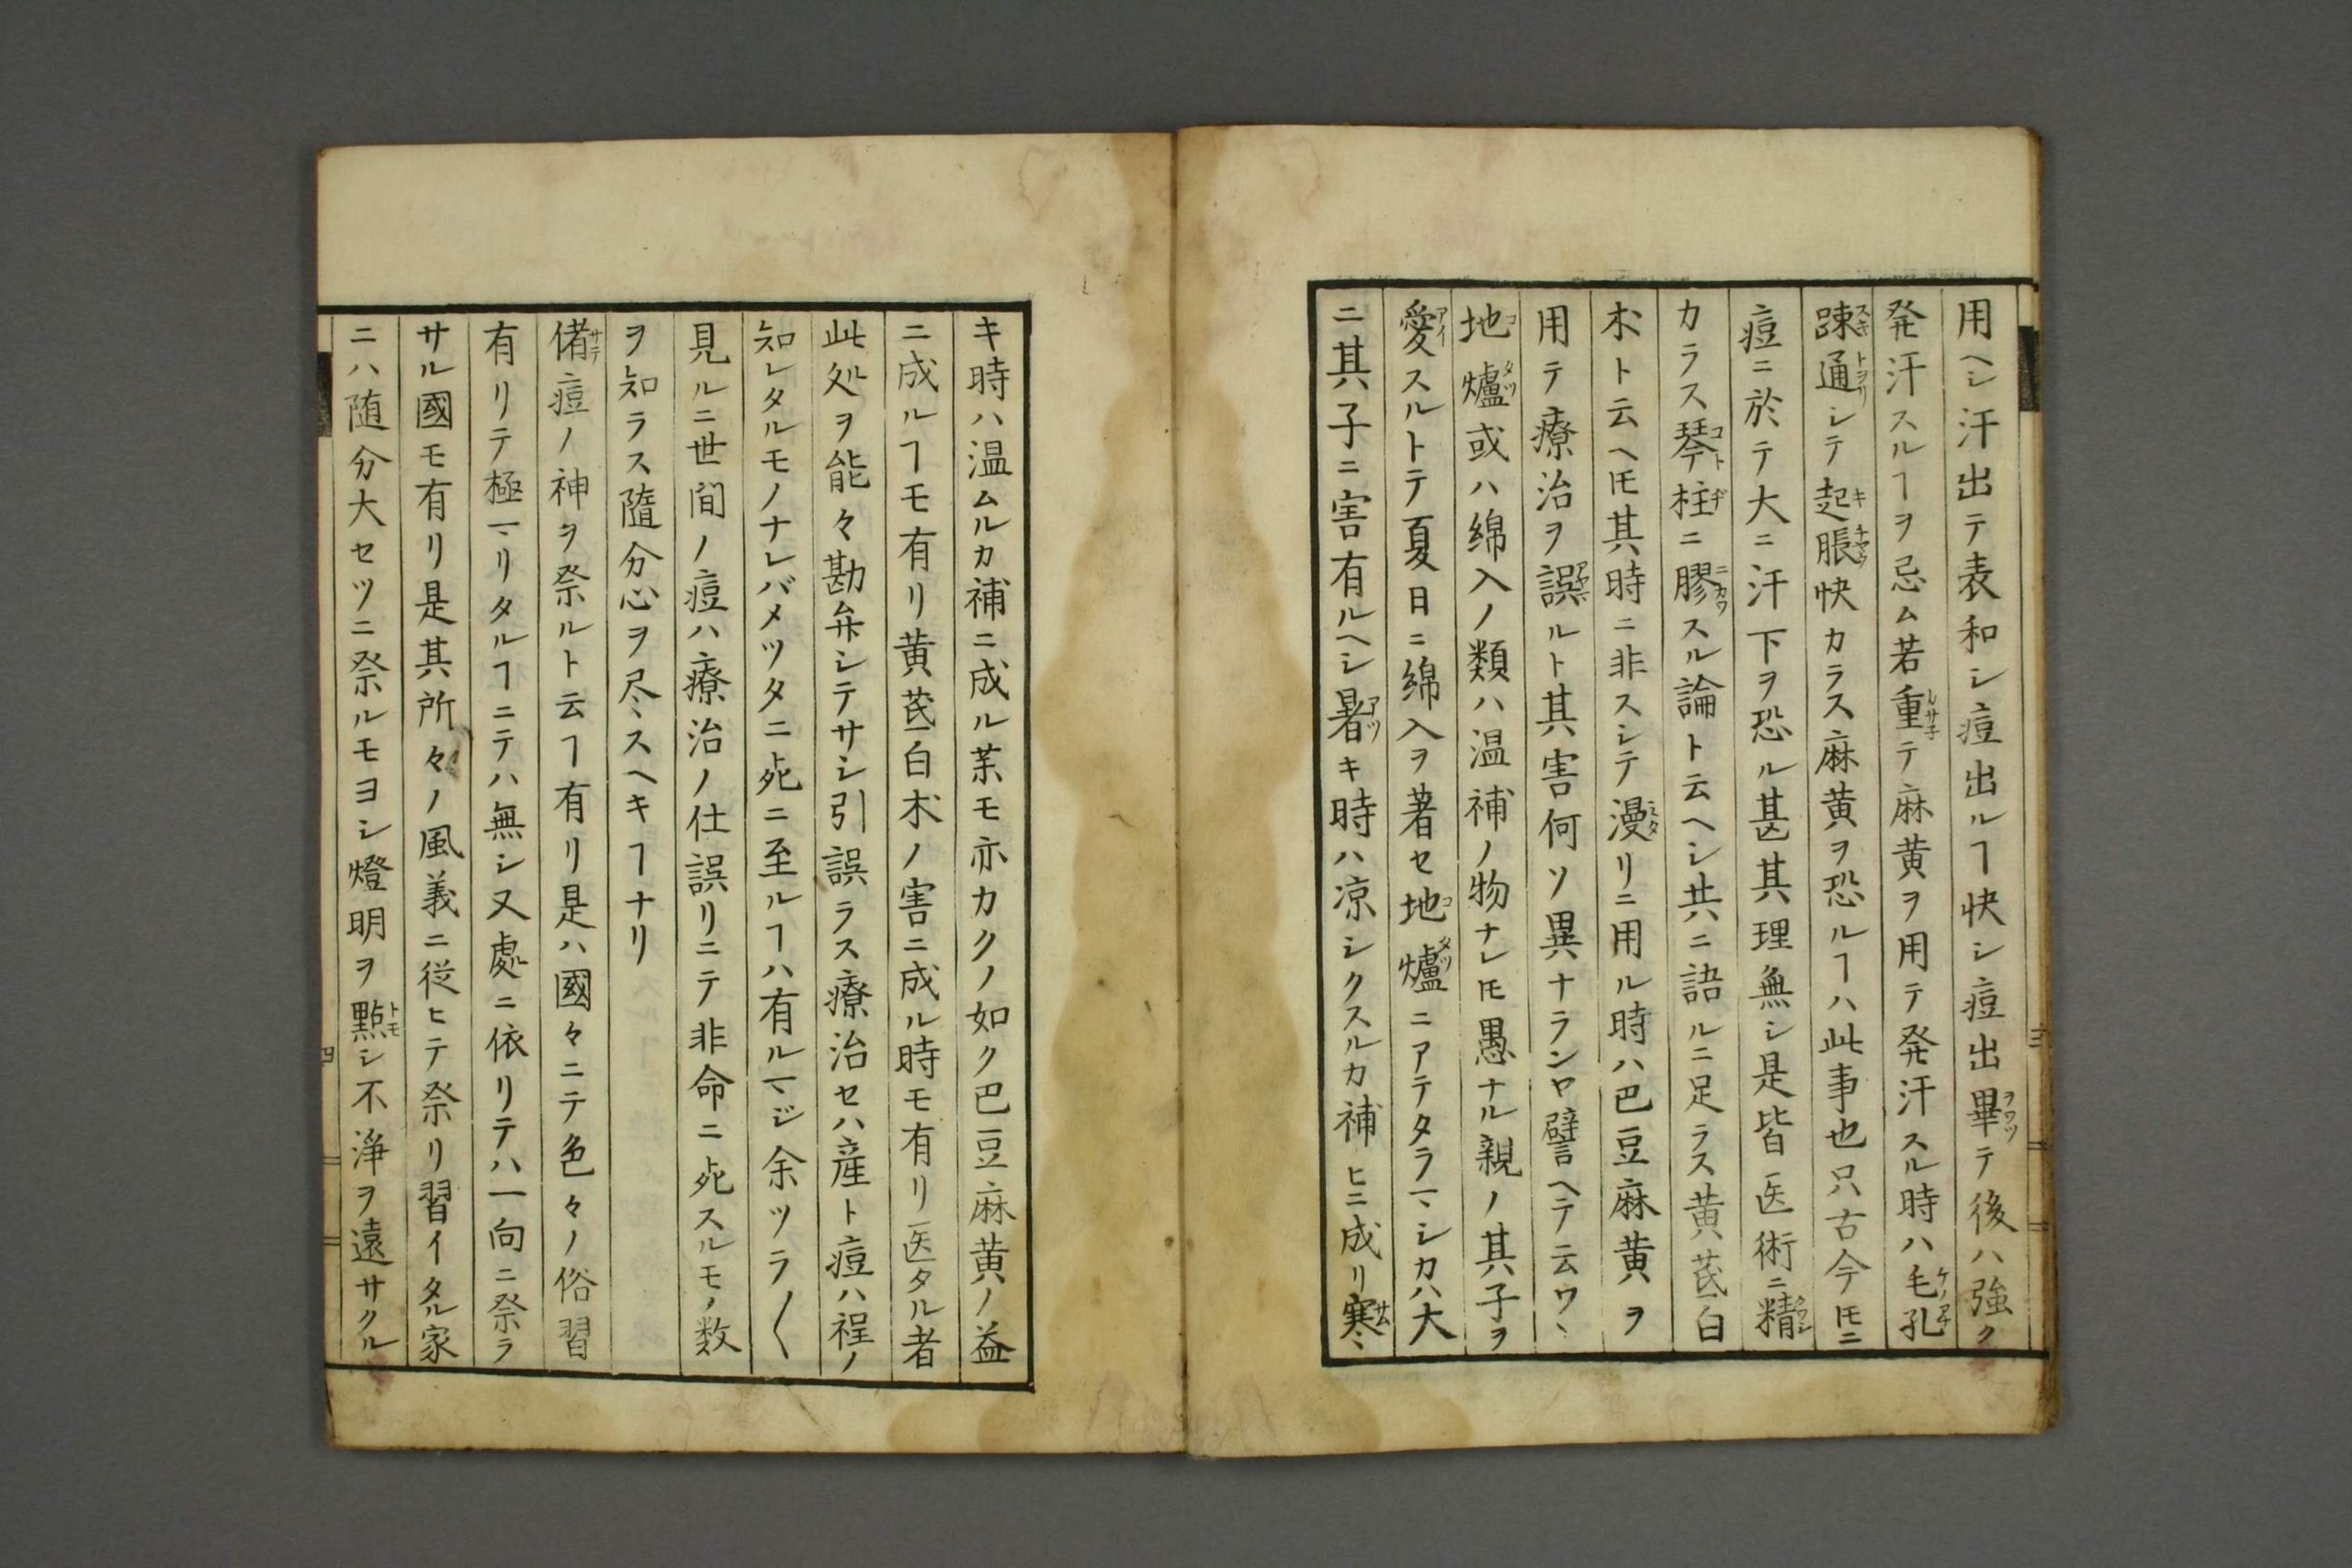 用ヘシ汗出テ表和シ痘出ルヿ快シ痘出畢テ後ハ強ク
発汗スルヿヲ忌ム若重テ麻黄ヲ用テ発汗スル時ハ毛孔
踈通シテ起脹快カラス麻黄ヲ恐ルヿハ此事也只古今𪜈ニ
痘ニ於テ大ニ汗下ヲ恐ル甚其理無シ是皆医術ニ精
カラス琴柱ニ膠スル論ト云ヘシ共ニ語ルニ足ラス黄芪白
朮ト云ヘ𪜈其時ニ非スシテ漫リニ用ル時ハ巴豆麻黄ヲ
用テ療治ヲ誤ルト其害何ソ異ナランヤ譬ヘテ云ワヽ
地爐或ハ綿入ノ類ハ温補ノ物ナレ𪜈愚ナル親ノ其子ヲ
愛スルトテ夏日ニ綿入ヲ著セ地爐ニアテタラマシカハ大
ニ其子ニ害有ルヘシ暑キ時ハ凉シクスルカ補ヒニ成リ寒
キ時ハ温ムルカ補ニ成ル茱モ亦カクノ如ク巴豆麻黄ノ益
ニ成ルヿモ有リ黄芪白朮ノ害ニ成ル時モ有リ医タル者
此処ヲ能々勘弁シテサシ引誤ラス療治セハ産ト痘ハ程ノ
知レタルモノナレバメツタニ死ニ至ルヿハ有ルマジ余ツラ〱
見ルニ世間ノ痘ハ療治ノ仕誤リニテ非命ニ死スルモノ数
ヲ知ラス隨分心ヲ尽スヘキヿナリ
偖痘ノ神ヲ祭ルト云ヿ有リ是ハ國々ニテ色々ノ俗習
有リテ極マリタルヿニテハ無シ又處ニ依リテハ一向ニ祭ラ
サル國モ有リ是其所々ノ風義ニ従ヒテ祭リ習イタル家
ニハ随分大セツニ祭ルモヨシ燈明ヲ點シ不浄ヲ遠サクル